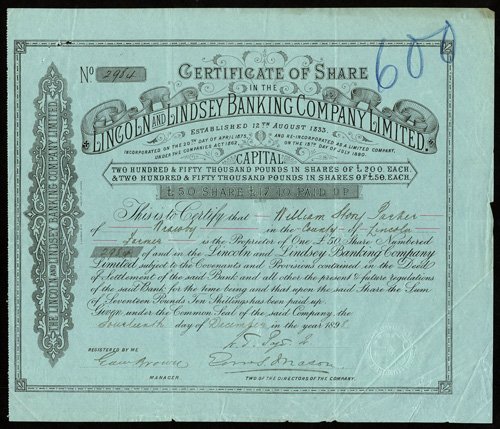 600
No 2984
CERTIFICATE OF SHARE
IN THE
LINCOLN AND LINDSEY BANKING COMPANY LIMITED.
ESTABLISHED 12TH AUGUST 1833.
INCORPORATED ON THE 20TH DAY OF APRIL 1875, AND RE-INCORPORATED AS A LIMITED COMPANY,
UNDER THE COMPANIES ACT 1862. ON THE 15TH DAY OF JULY 1880.
CAPITAL
TWO HUNDRED & FIFTY THOUSAND POUNDS IN SHARES OF £200. EACH.
& TWO HUNDRED & FIFTY THOUSAND POUNDS IN SHARES OF £50. EACH.
£50 SHARE £17.10 PAID UP
This is to Certify that William Parker
of in the County of Lincoln
Farmer is the Proprietor of One £50 Share Numbered
2984 of and in the Lincoln and Lindsey Banking Company
Limited subject to the Covenants and Provisions contained in the Deed
of Settlement of the said Bank and all other the present & future regulations
of the said Bank for the time being and that upon the said Share the Sum
of Seventeen Pounds Ten Shillings has been paid up.
Given under the Common Seal of the said Company the
fourteenth day of December in the year 189
REGISTERED BY ME
MANAGER
TWO OF THE DIRECTORS OF THE COMPANY.
THE LINCOLN AND LINDSEY BANKING COMPANY LIMITED